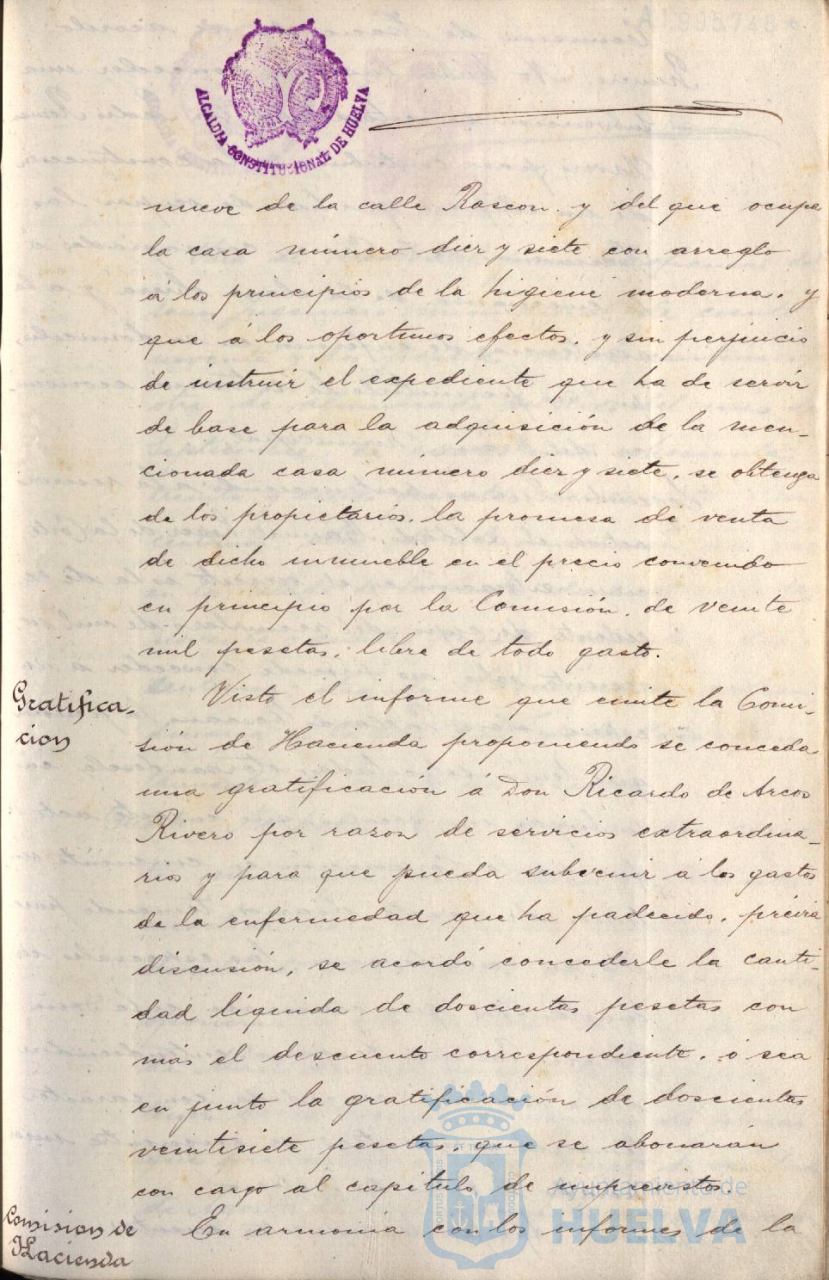 ALCALDIA CONSTITUCIONAL DE HUELVA
nueve de la calle Rascon y del que ocupa
la casa número diez y siete con arreglo
á los principios de la higiene moderna, y
que á los oportunos efectos, y sin perjuicio
de instruir el expediente que ha de servir
de base para la adquisición de la men-
cionada casa número diez y siete, se obtenga
de los propietarios, la promesa de venta
de dicho inmueble en el precio convenido
en principio por la Comisión, de veinte
mil pesetas, libre de todo gasto.
Gratifica-
cion
Visto el informe que emite la Comi-
sión de Hacienda proponiendo se conceda
una gratificación á Don Ricardo de Arcos
Rivero por razon de servicios extraordina-
rios y para que pueda subvenir á los gastos
de la enfermedad que ha padecido, prévia
discusión, se acordó concederle la canti-
dad líquida de doscientas pesetas con
más el descuento correspondiente, ó sea
en junto la gratificación de doscientas
veintisiete pesetas, que se abonarán
con cargo al capítulo de imprevistos.
Comision de
Hacienda
En armonia con los informes de la
Ayuntamiento de
HUELVA